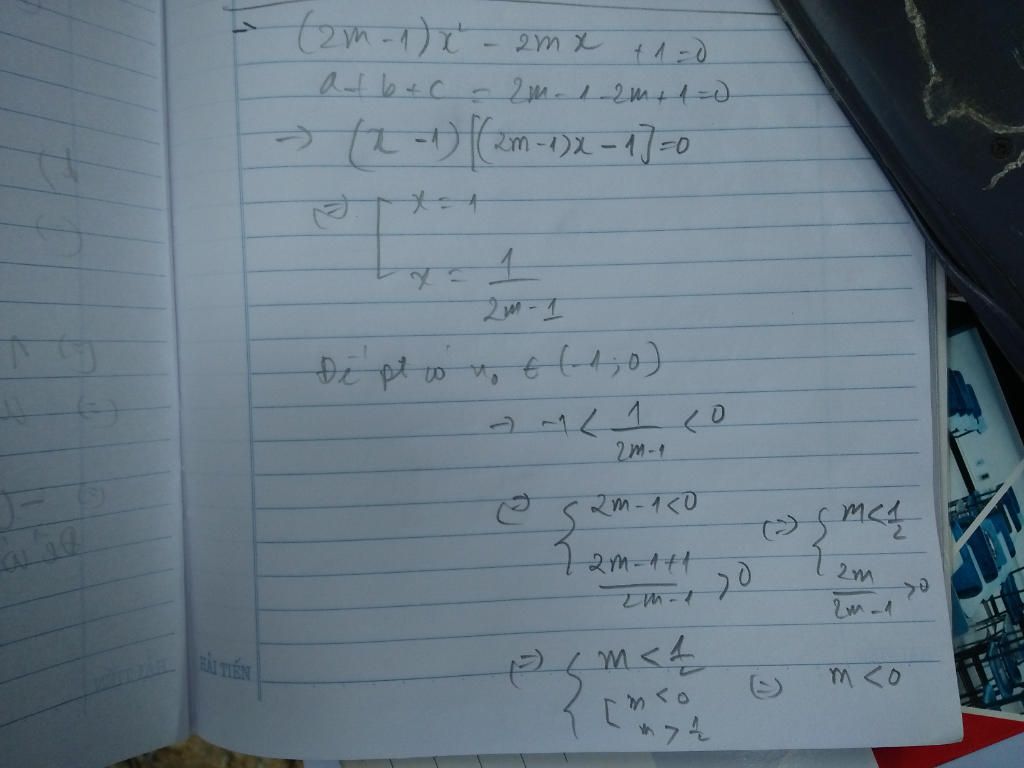 → (2m-1)x² - 2mx +1=0
a+b+c = 2m-1-2m+1=0
→ (x-1)[(2m-1)x-1]=0
(=) [ x=1
x = 1/(2m-1)
Để pt có x₀ ∈ (-1;0)
→ -1 < 1/(2m-1) < 0
(=) { 2m-1<0 (=) { m<1/2
(2m-1+1)/(2m-1) >0 2m/(2m-1) >0
(=) { m<1/2
[ m<0 (=) m<0
m>1/2
HẢI TIẾN